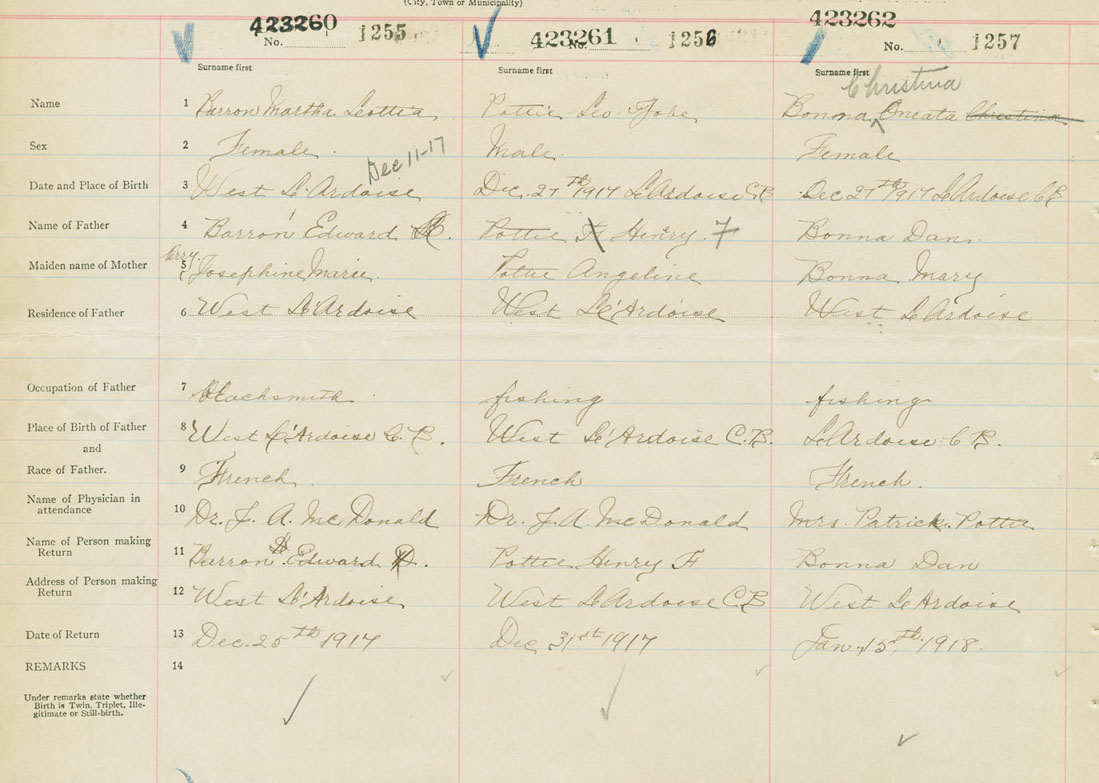 (City, Town or Municipality)
423260 423261 423262
No. 1255 No. 1256 No. 1257
Surname first Surname first Surname first
Christina
Name 1 Barron Martha Lottia Pottie Leo Jobe Bonna Oneata Christina
Sex 2 Female Male Female
Dec 11-17
Date and Place of Birth 3 West L'Ardoise Dec. 27th 1917 L'Ardoise C.B Dec 27th 1917 L'Ardoise C B
Name of Father 4 Barron Edward Pottie Henry F Bonna Dan
Maiden name of Mother 5 Josephine Marie Pottie Angeline Bonna Mary
Residence of Father 6 West L'Ardoise West L'Ardoise West L Ardoise
Occupation of Father 7 blacksmith fishing fishing
Place of Birth of Father 8 West L'Ardoise C. B. West L'Ardoise C.B. L Ardoise C B.
and
Race of Father. 9 French French French.
Name of Physician in
attendance 10 Dr. J. A. McDonald Dr. J. A. McDonald Mrs. Patrick Pottie
Name of Person making
Return 11 Barron Edward Pottie Henry F Bonna Dan
Address of Person making
Return 12 West L'Ardoise West L Ardoise C B West L Ardoise
Date of Return 13 Dec. 25th 1917 Dec 31st 1917 Jan. 15th 1918.
REMARKS 14
Under remarks state whether
Birth is Twin, Triplet, Ille-
gitimate or Still-birth.